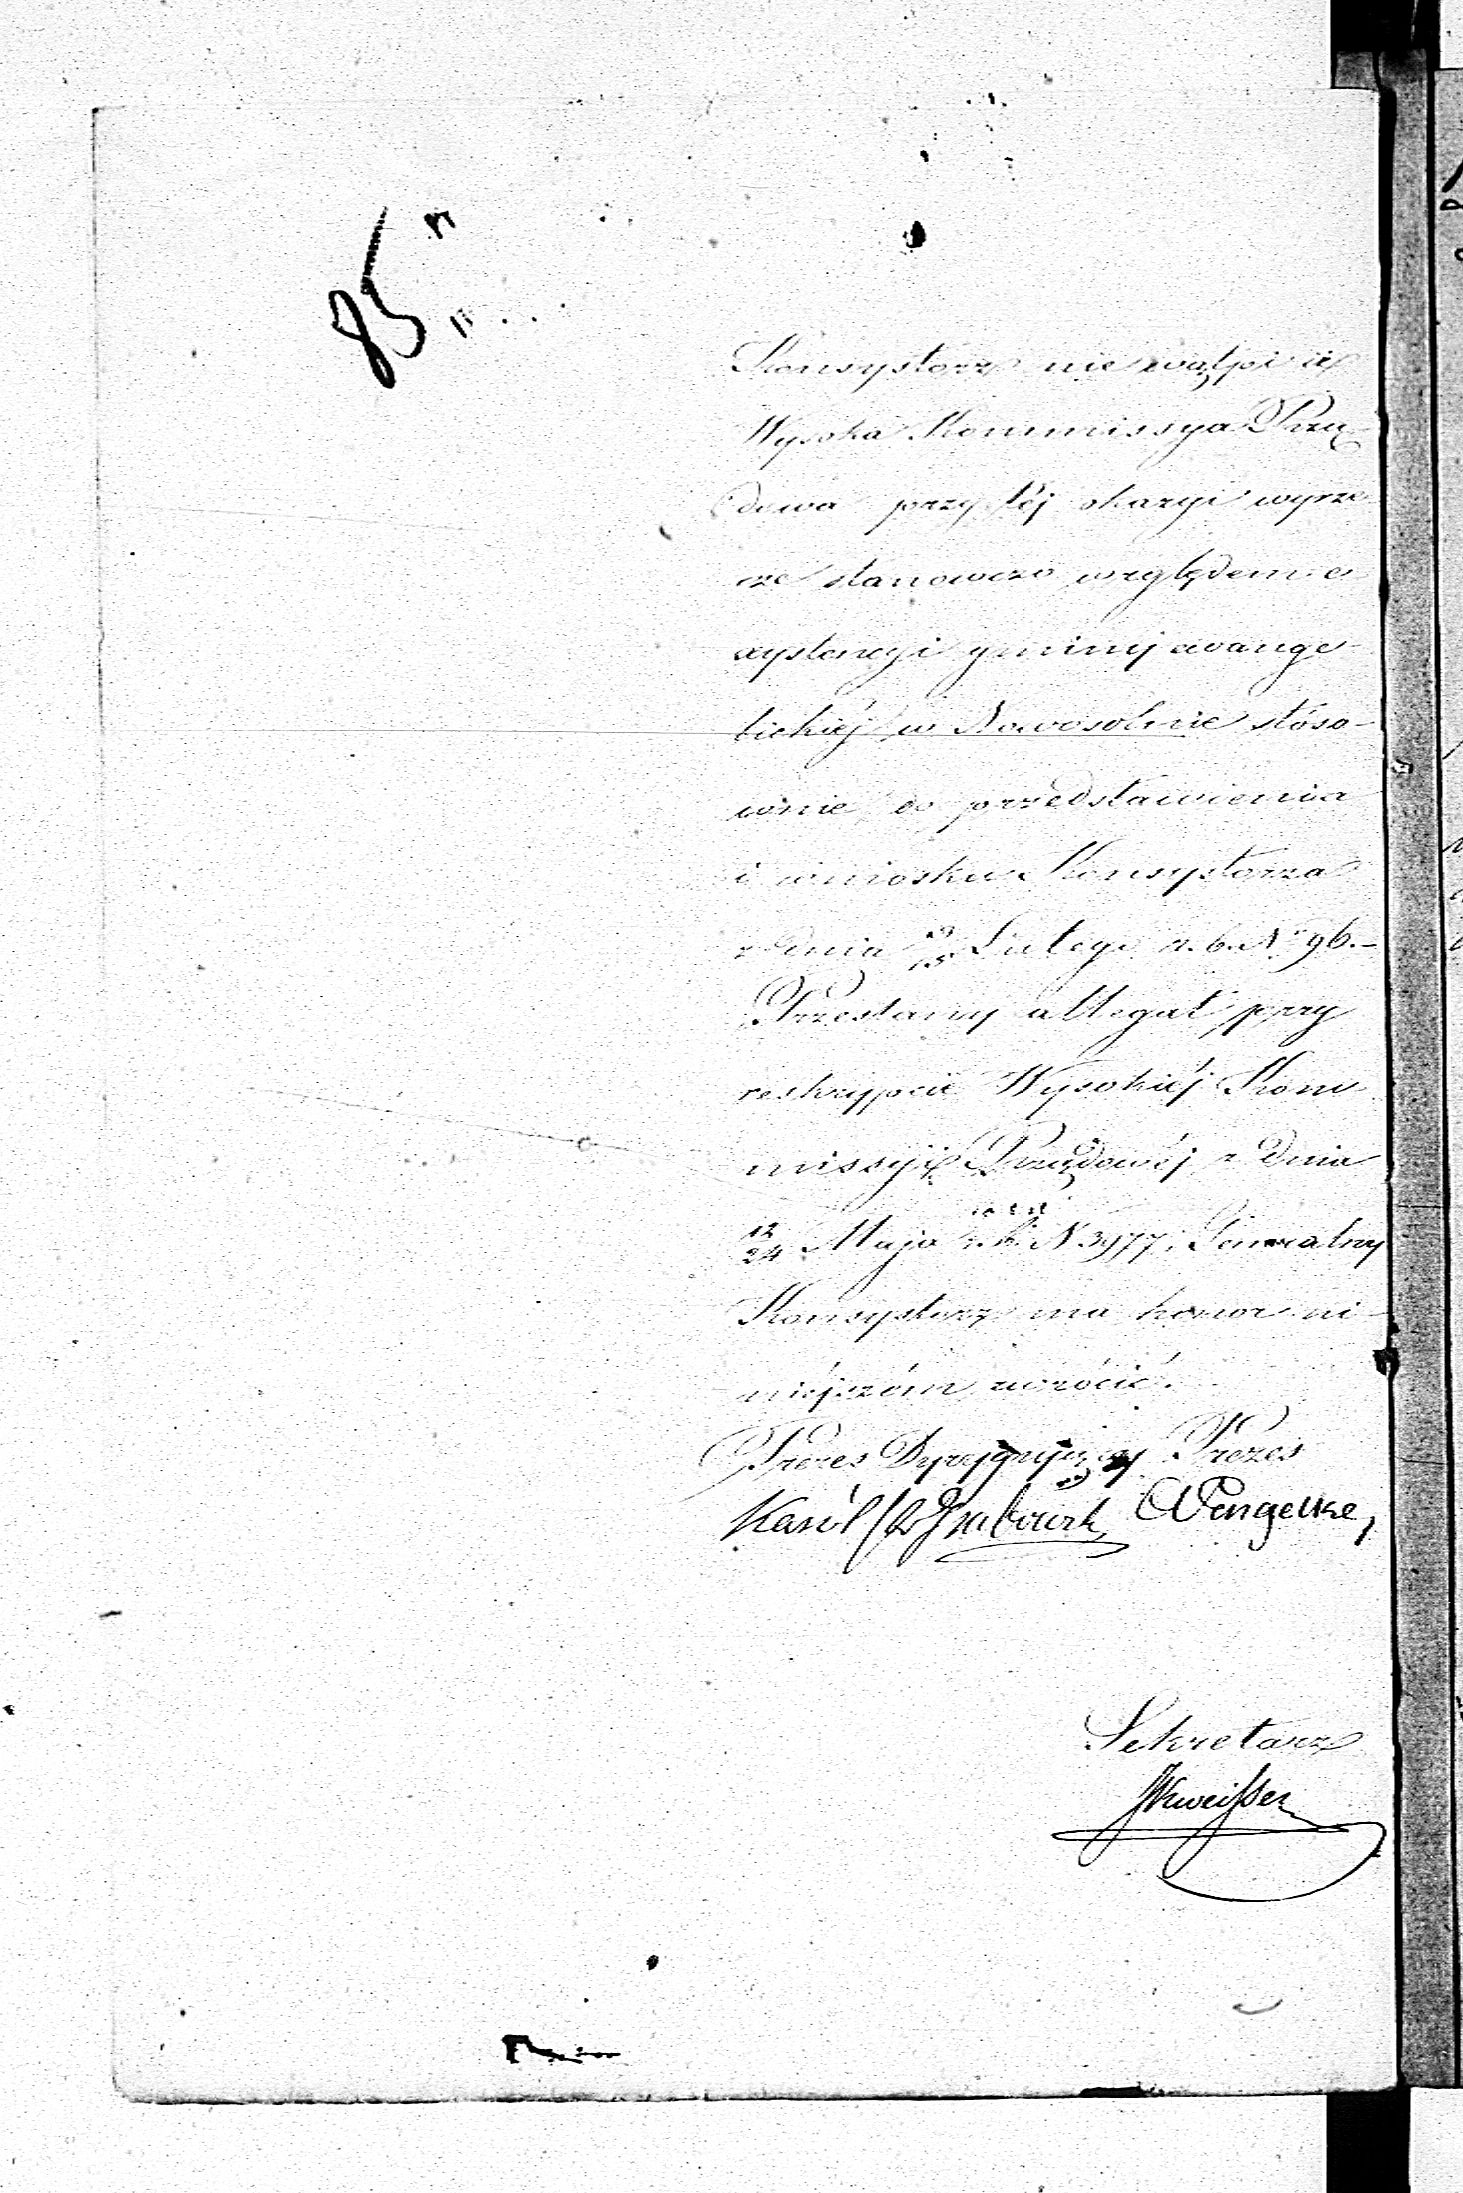 85
Konsystorz nie wątpi iż
Wysoka Kommissya Rzą-
dowa przy téj okazyi wyrze
cze stanowczo względem e-
xystencyi gminy ewange-
lickiéj w Nowosolnie stóso-
wnie do przedstawienia
i wniosku Konsystorza
z dnia Lutego r. b. Nr 96.-
Przesłany allegat przy
reskrypcie Wysokiéj Kom
missyi Rządowéj z dnia
12/24 Maja r. b. N 3977, Generalny
Konsystorz ma honor ni-
niéjszém zwrócić.
Prezes Dyrygujący Prezes
Karól
Sekretarz